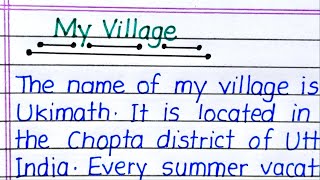 My Village
The name of my village is
Ukimath. It is located in
the Chopta district of Utt
India. Every summer vacat